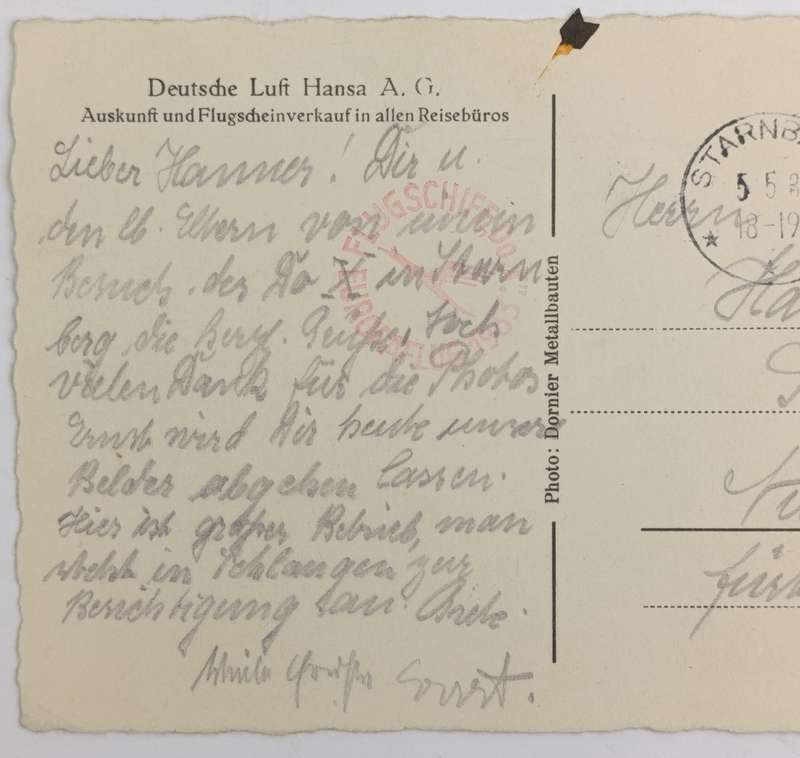 Deutsche Luft Hansa A. G.
Auskunft und Flugscheinverkauf in allen Reisebüros
Lieber Hannes! Dir u.
den lb. Eltern vom
Besuch der Do X in Starn
berg die herzl. Grüße,
vielen Dank für die Photos
Ernst wird Dir heute unsere
Bilder abgehen lassen.
Hier ist großer Betrieb, man
steht in Schlangen zur
Besichtigung an.
Photo: Dornier Metallbauten
FLUGSCHIFF DO
STARNB
5 5
18-19
Herrn
Ha